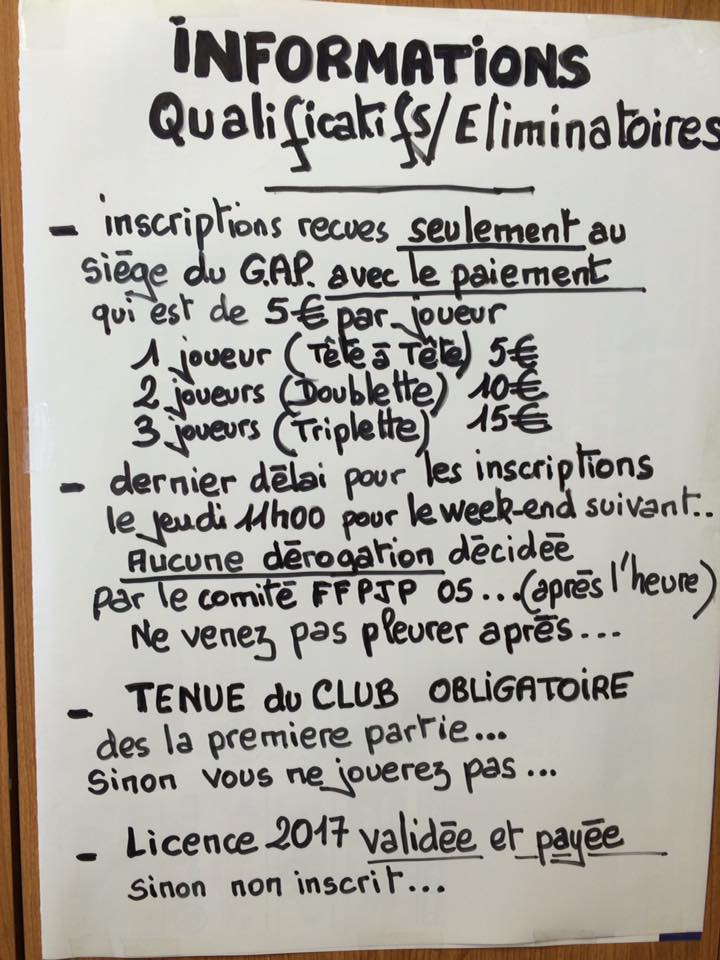 INFORMATIONS
Qualificatifs/Eliminatoires
- inscriptions recues seulement au
siège du G.A.P. avec le paiement
qui est de 5€ par joueur
1 joueur (Tête à Tête) 5€
2 joueurs (Doublette) 10€
3 joueurs (Triplette) 15€
- dernier délai pour les inscriptions
le jeudi 11h00 pour le week-end suivant..
Aucune dérogation décidée
par le comité FFPJP 05...(après l'heure)
Ne venez pas pleurer après...
- TENUE du CLUB OBLIGATOIRE
des la premiere partie...
Sinon vous ne jouerez pas...
- Licence 2017 validée et payée
Sinon non inscrit...